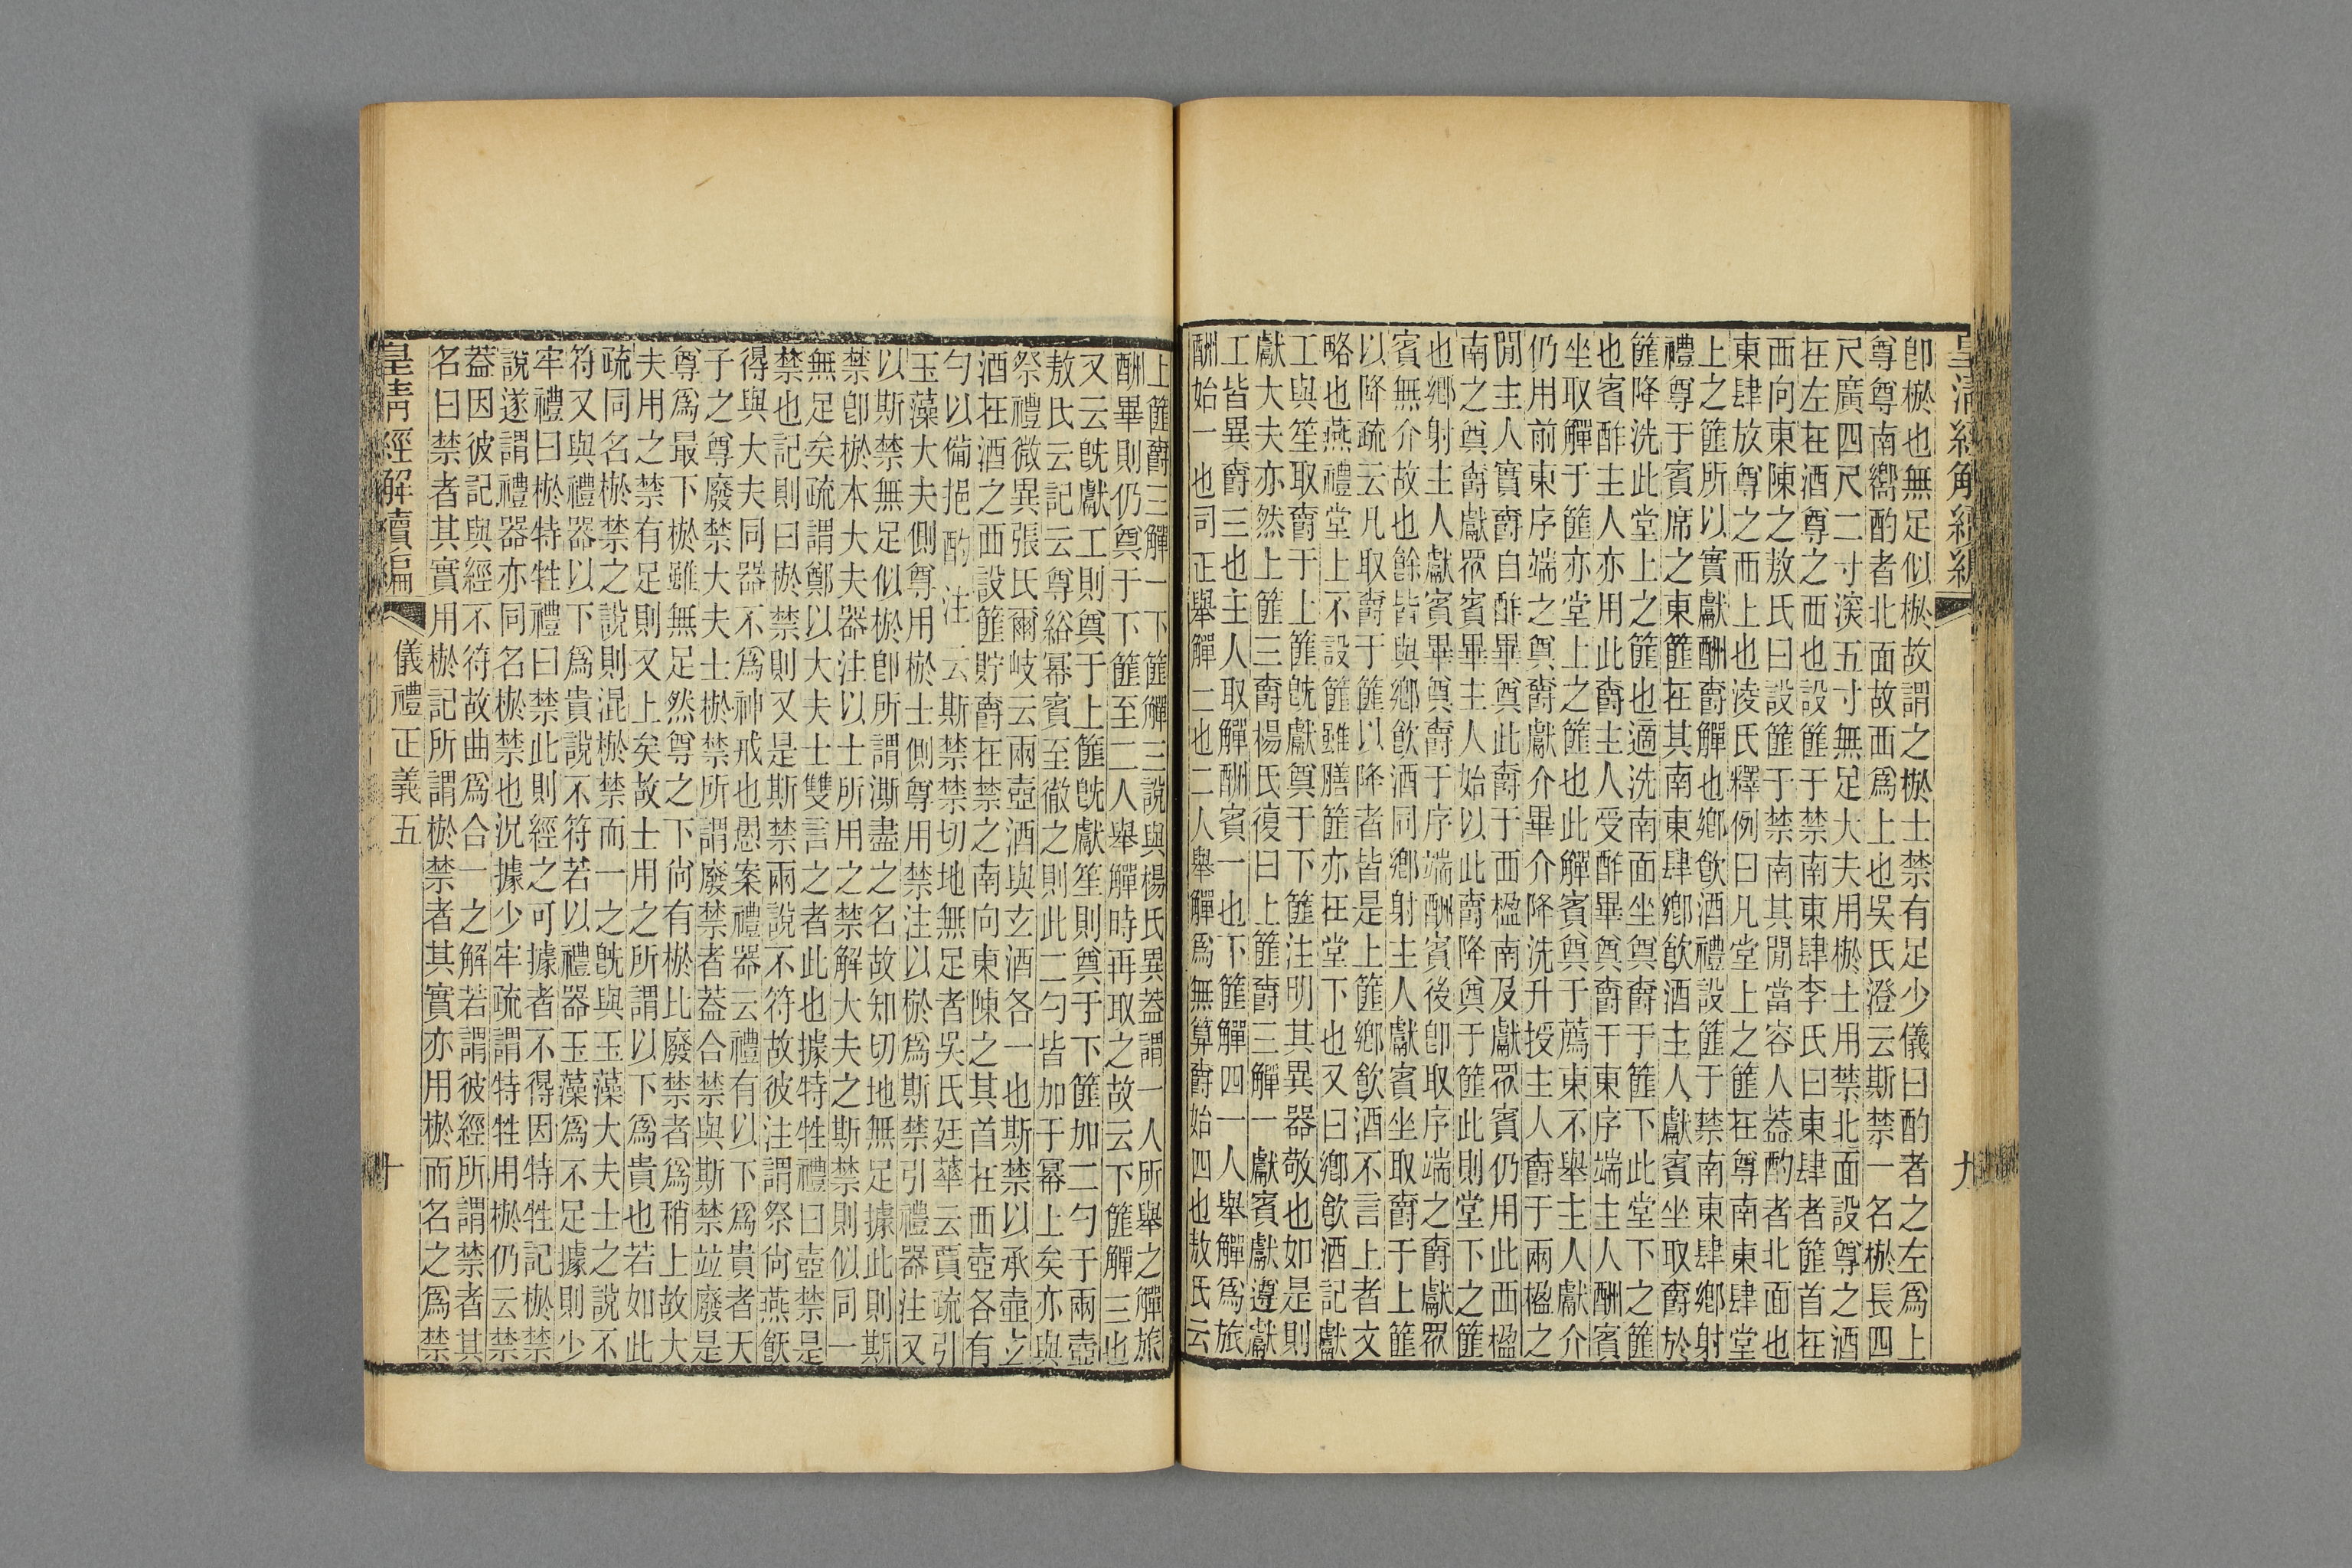 卽棜也無足似棜故謂之棜士禁有足少儀曰酌者之左爲上
尊尊南嚮酌者北面故西爲上也吳氏澄云斯禁一名棜長四
尺廣四尺二寸深五寸無足大夫用棜士用禁北面設尊之酒
在左在酒尊之西也設篚于禁南東肆李氏曰東肆者篚首在
西向東陳之敖氏曰設篚于禁南其閒當容人蓋酌者北面也
東肆放尊之而上也淩氏釋例曰凡堂上之篚在尊南東肆堂
上之篚所以實獻酬爵觶也鄉飮酒禮設篚于禁南東肆鄉射
禮尊于賓席之東篚在其南東肆鄉飮酒主人獻賓坐取爵於
篚降洗此堂上之篚也適洗南面坐奠爵于篚下此堂下之篚
也賓酢主人亦用此爵主人受酢畢奠爵于東序端主人酬賓
坐取觶于篚亦堂上之篚也此觶賓奠于薦東不舉主人獻介
仍用前東序端之奠爵獻介畢介降洗升授主人爵于兩楹之
閒主人實爵自酢畢奠此爵于西楹南及獻眾賓仍用此西楹
南之奠爵獻眾賓畢主人始以此爵降奠于篚此則堂下之篚
也鄉射主人獻賓畢奠爵于序端酬賓後卽取序端之爵獻眾
賓無介故也餘皆與鄉飮酒同鄉射主人獻賓坐取爵于上篚
以降疏云凡取爵于篚以降者皆是上篚鄉飮酒不言上者文
略也燕禮堂上不設篚雖膳篚亦在堂下也又曰鄉飮酒記獻
工與笙取爵于上篚旣獻奠于下篚注明其異器敬也如是則
獻大夫亦然上篚三爵楊氏復曰上篚爵三觶一獻賓獻遵獻
工皆異爵三也主人取觶酬賓一也下篚觶四一人舉觶爲旅
酬始一也司正舉觶二也二人舉觶爲無算爵始四也敖氏云
上篚爵三觶一下篚觶三說與楊氏異蓋謂一人所舉之觶旅
酬畢則仍奠于下篚至二人舉觶時再取之故云下篚觶三也
又云旣獻工則奠于上篚旣獻笙則奠于下篚加二勺于兩壺
敖氏云記云尊綌冪賓至徹之則此二勺皆加于冪上矣亦與
祭禮微異張氏爾岐云兩壺酒與玄酒各一也斯禁以承壺玄
酒在酒之西設篚貯爵在禁之南向東陳之其首在西壺各有
勺以備挹酌 注云斯禁禁切地無足者吳氏廷華云賈疏引
玉藻大夫側尊用棜士側尊用禁注以棜爲斯禁引禮器注又
以斯禁無足似棜卽所謂澌盡之名故知切地無足據此則斯
禁卽棜本大夫器注以士所用之禁解大夫之斯禁則似同一
無足矣疏謂鄭以大夫士雙言之者此也據特牲禮曰壺禁是
禁也記則曰棜禁則又是斯禁兩說不符故彼注謂祭尙燕飮
得與大夫同器不爲神戒也愚案禮器云禮有以下爲貴者天
子之尊廢禁大夫士棜禁所謂廢禁者蓋合禁與斯禁並廢是
尊爲最下棜雖無足然尊之下尙有棜比廢禁者爲稍上故大
夫用之禁有足則又上矣故士用之所謂以下爲貴也若如此
疏同名棜禁之說則混棜禁而一之旣與玉藻大夫士之說不
符又與禮器以下爲貴說不符若以禮器玉藻爲不足據則少
牢禮曰棜特牲禮曰禁此則經之可據者不得因特牲記棜禁
說遂謂禮器亦同名棜禁也況據少牢疏謂特牲用棜仍云禁
蓋因彼記與經不符故曲爲合一之解若謂彼經所謂禁者其
名曰禁者其實用棜記所謂棜禁者其實亦用棜而名之爲禁
皇淸經解續編 儀禮正義五 十